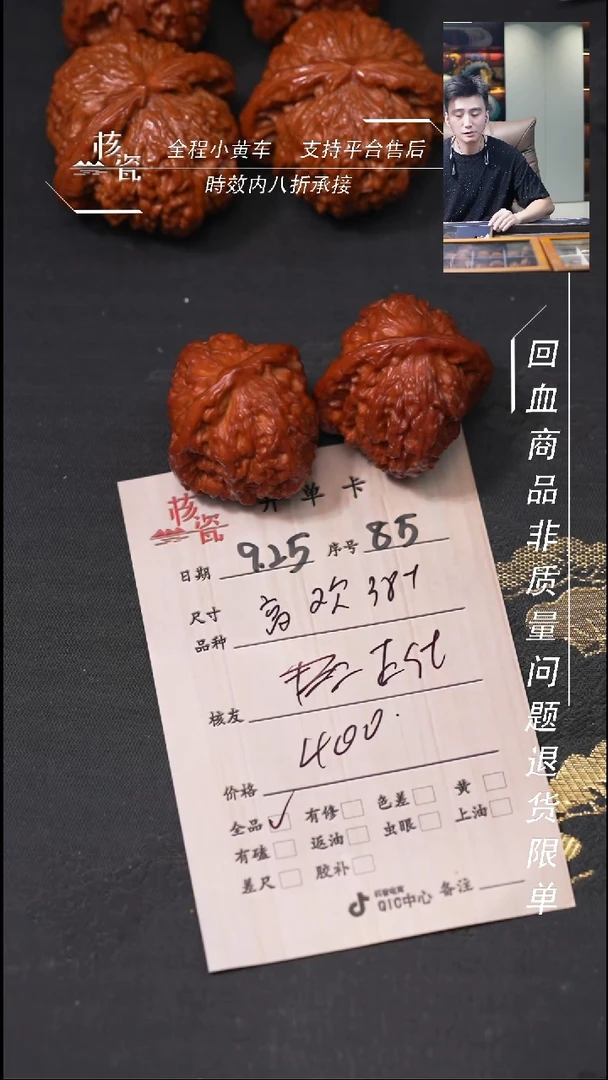 核瓷
全程小黄车 支持平台售后
時效内八折承接
回血商品非质量问题退货限单
核瓷
开单卡
日期 9.25 序号 85
尺寸
品种
核友
400.
价格
全品 ✓ 有修 色差 黄
有磕 返油 虫眼 上油
差尺 胶补
抖音电商
QIC中心 备注